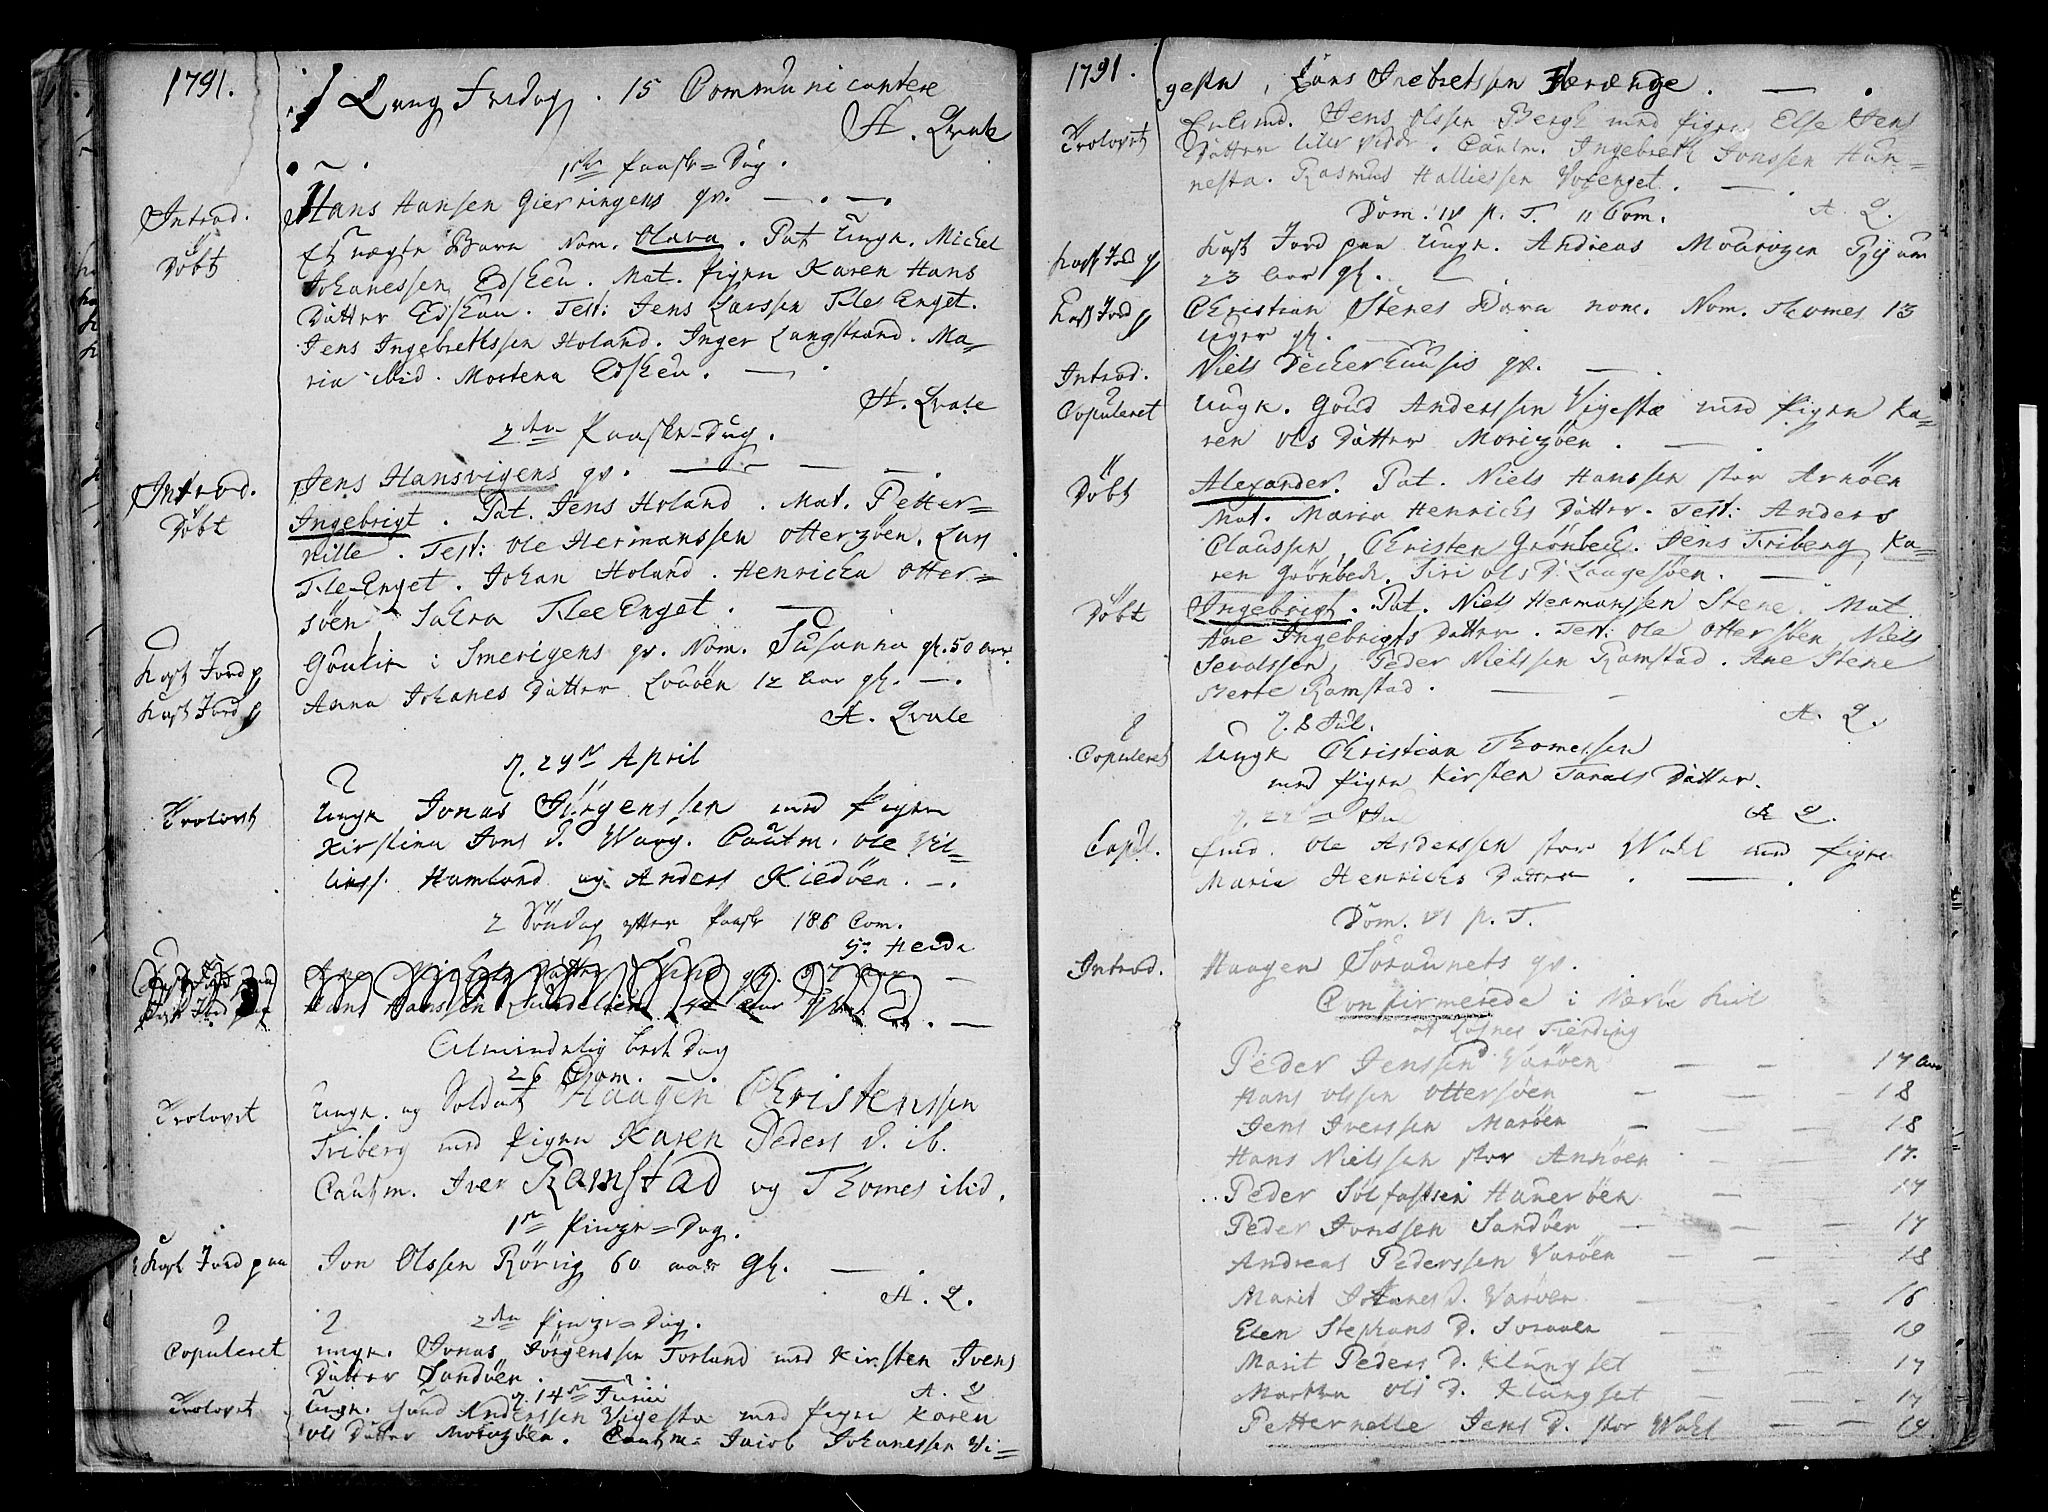 1791.
Lang Fredag. 15 Communicantere
A. Qvale
1ste Paaske=Dag.
Introd. Hans Hansen Gierringens qv.
Döbt Et uægte Barn Nom. Olava. Pat. Ungk. Michel
Johanessen Edshau. Mat. Pigen Karen Hans
Datter Edshau. Test: Jens Larssen Flee Enget.
Jens Ingebrethssen Holand. Inger Langstrand. Ma=
ria ibid. Mortena Edshau.
A. Qvale
2den Paaske=Dag.
Introd. Jens Hansvigens qv.
Döbt Ingebrigt. Pat. Jens Holand. Mat. Petter=
nille. Test: Ole Hermanssen Otterzöen. Lars
Flee-Enget. Johan Holand. Henricha Otter=
söen Salra Flee Enget.
Kast Jord p i Smerigens qv. Nom. Susanna gl. 50 aar.
Kast Jord p Anna Johanes Datter 12 Aar gl.
A. Qvale
d. 29de April
Trolovet Ungk Jonas Jörgenssen med Pigen
Kirstina Ivers D. Waag. Cautm. Ole
Hamland og Anders Kiedöen.
2 Söndag efter Paaske 186 Com.
Hans Hanssen
Almindelig Bede Dag
26 Com.
Trolovet Ungk. og Soldat Haagen Christenssen
Friberg med Pigen Karen Peders D. ib.
Cautm. Iver Ramstad og Thomes ibid.
1ste Pinze=Dag.
Kast Jord paa Jon Olssen Rörvig 60 aar gl.
A. Q.
2den Pinze=Dag.
Copuleret ungk. Jonas Jörgenssen Torland med Kirsten Ivers
Datter Sandöen.
A. Q
d. 14de Junii
Trolovet Ungk. Gund Anderssen Vigesta med Pigen Karen
Ols Datter Morizöen. Cautm: Jacob Johanessen Vi=
1791.
gesta, Lars Inebretssen Færænge.
Trolovet Enkemd. Jens Olssen Bergh med Pigen Else Jens
Datter lille Vidde. Cautm. Ingebreth Jonssen Han=
nesta. Rasmus Halliessen
Dom. IV p. T. 11 Com. A. Q.
Kast Jord p Kast Jord paa Ungk. Andreas
23 Aar gl.
Kast Jord p Christian Stenes Barn Nom. Thomes 13
uger gl.
Introd. Niels Deckerhuusis qv.
Copuleret Ungk. Goud Anderssen Vigesta med Pigen Ka=
ren Ols Datter Morizöen.
Döbt Alexander. Pat. Niels Hanssen stor Arnöen
Mat. Maren Henrichs Datter. Test: Anders
Claussen, Christen Grönbech. Jens Friberg, Ka=
ren Grönbech. Siri Ols D. Laagesöen.
Döbt Ingebrigt. Pat. Niels Hermanssen Stene. Mat.
Ane Ingebrigts Datter. Test: Ole Ottersöen Niels
Sevalssen, Peder Nielssen Ramstad. Ane Stene
Berte Ramstad.
A. Q.
d. 8 Jul.
Copuleret Ungk Christian Thomessen
med Pigen Kirsten Datter.
A Q.
Copul. Ole Anderssen stor Wahl med Pigen
Maria Henrichs Datter.
Dom. VI p. T.
Introd. Haagen Soraunets qv.
Confirmerede i Næröe
af Lofnes Fierding
Peder Jenssen Varöen 17 Aar
Hans Olssen Ottersöen 18
Jens Iverssen Maröen 18
Hans Nielssen stor Annöen 17.
Peder Sölfastsen Haneröen 17
Peder Jonssen Sandöen 17
Andreas Pederssen Varöen 18
Marit Johanes D. Varöen 16
Elen Stephans D. Soraaen
Marit Peders D. Klungset 17
Martha Ols D. Klungset 17
Petternelle Jens D. stor Wahl 19.